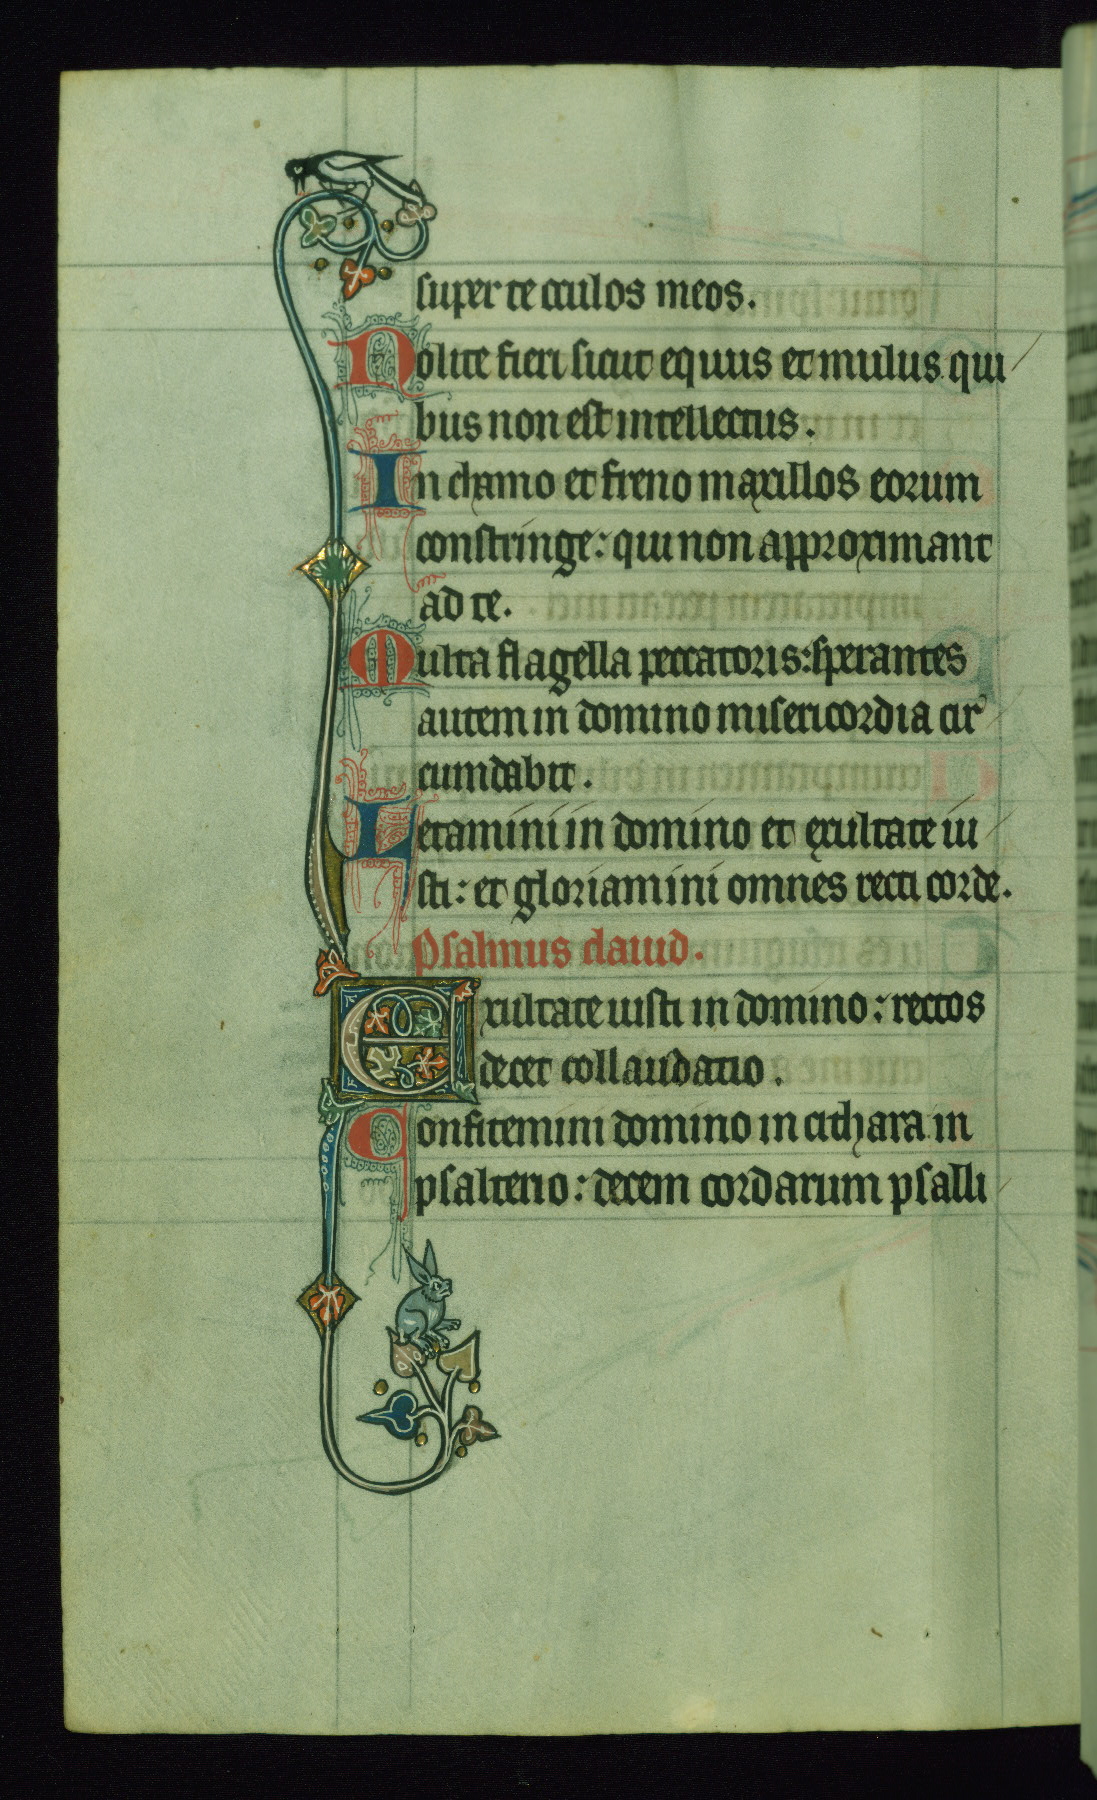 super te oculos meos.
Nolite fieri sicut equus et mulus qui
bus non est intellectus.
In chamo et freno maxillos eorum
constringe: qui non approximant
ad te.
Multa flagella peccatoris: sperantes
autem in domino misericordia cir
cumdabit.
Letamini in domino et exultate iu
sti: et gloriamini omnes recti corde.
Psalmus dauid.
Exultate iusti in domino: rectos
decet collaudatio.
Confitemini domino in cithara in
psalterio: decem cordarum psalli